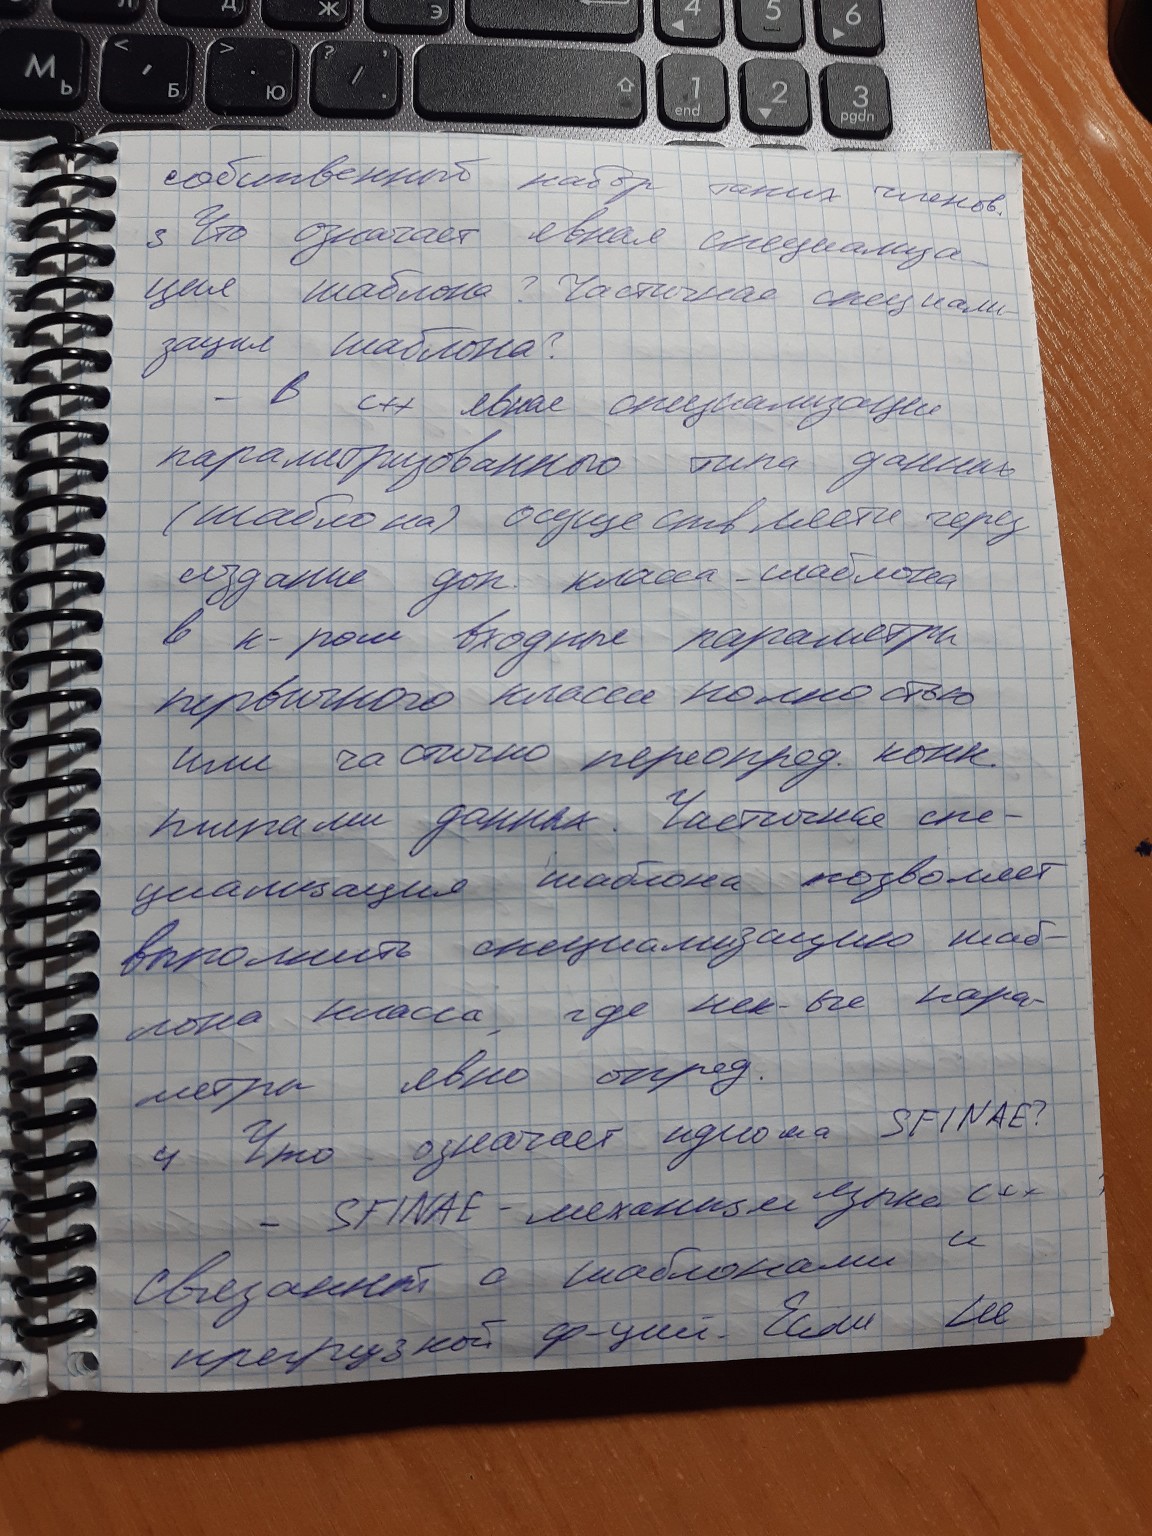 Л Д Ж Э 4 5 6
М Ь < , Б > . Ю ? / , . 1 end 2 3 pgdn
собственный набор таких членов.
3 Что означает явная специализа-
ция шаблона? Частичная специали-
зация шаблона?
- В с++ явная специализация
параметризованного типа данных
(шаблона) осуществляется через
создание доп. класса-шаблона
в к-ром входные параметры
первичного класса полностью
или частично переопред. конк.
типами данных. Частичная спе-
циализация шаблона позволяет
выполнить специализацию шаб-
лона класса, где нек-ые пара-
метры явно опред.
4 Что означает идиома SFINAE?
- SFINAE - механизм языка с++
связанный с шаблонами и
прегрузкой ф-ций. Если не